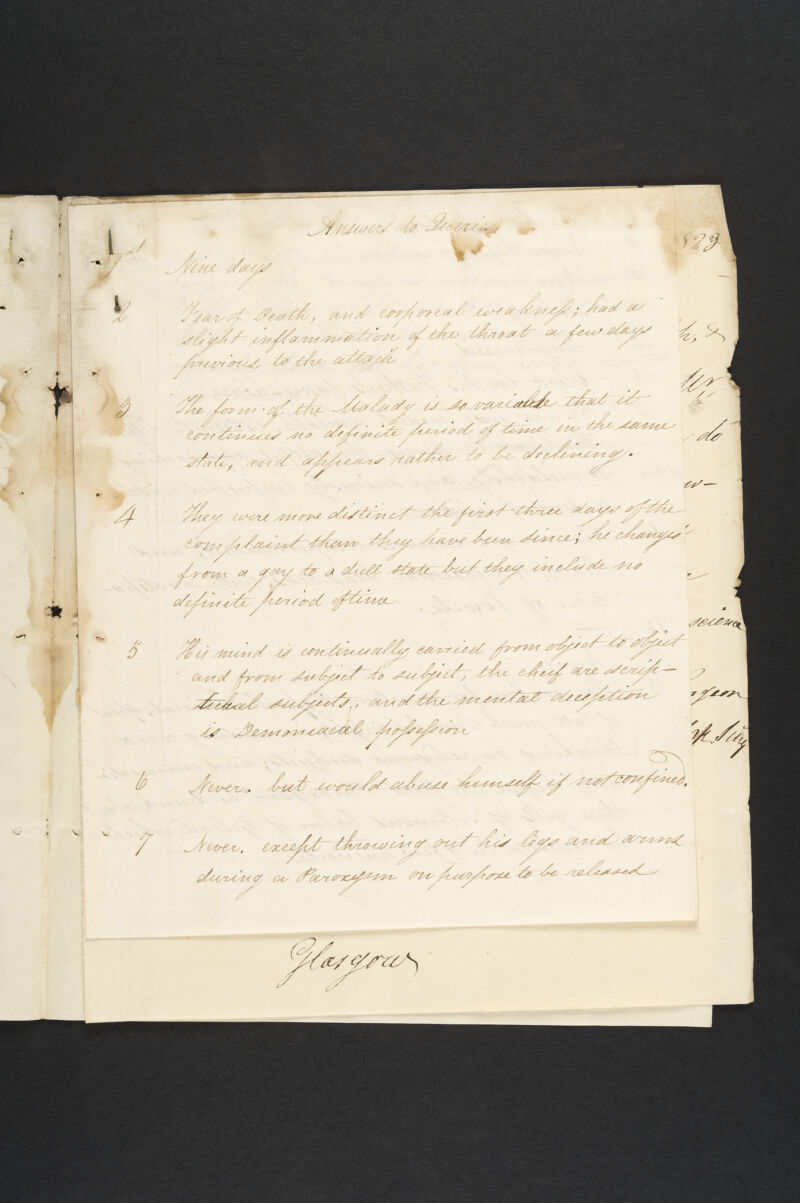 Answers to Queries
1st Nine days
2 Fear of Death, and corporeal weakness; had a
slight inflammation of the throat a few days
previous to the attack
3 The form of the Malady is so variable that it
continues no definite period of time in the same
state, and appears rather to be declining.
4 They were more distinct the first three days of the
complaint than they have been since; he changes
from a gay to a dull state but they include no
definite period of time
5 His mind is continually carried from object to object
and from subject to subject, the cheif are scrip-
tural subjects, and the mental deception
is Demoniacal possession
6 Never. but would abuse himself if not confined.
7 Never. except throwing out his legs and arms
during a Paroxysm on purpose to be released
Glasgow
823
h, &
do
w-
science
rgeon